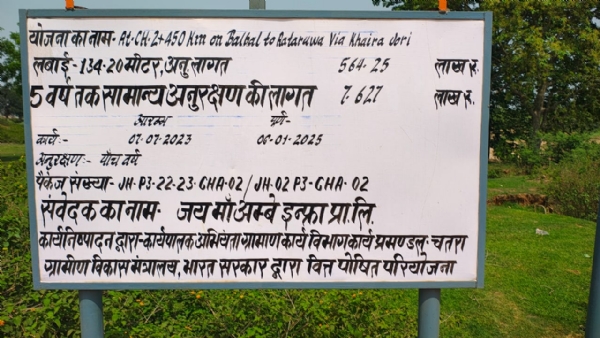 योजना का नाम- At-CH-2+450 Km on Balbal to Rataruwa Via Khaira Jori
लबाई- 134.20 मीटर, अनु लागत 564.25 लाख रु.
5 वर्ष तक सामान्य अनुरक्षण की लागत 7.627 लाख रु.
आरम्भ पूर्ण-
कार्य:- 07-07-2023 06-01-2025
अनुरक्षण:- पाँच वर्ष
पैकेज संख्या- JH-P3-22-23-CHA-02 / JH-02 P3-CHA-02
संवेदक का नाम- जय माँ अम्बे इन्फ्रा प्रा.लि.
कार्य निष्पादन द्वारा-कार्यपालक अभियंता ग्रामीण कार्य विभाग कार्य प्रमण्डल- चतरा
ग्रामीण विकास मंत्रालय, भारत सरकार द्वारा वित्त पोषित परियोजना